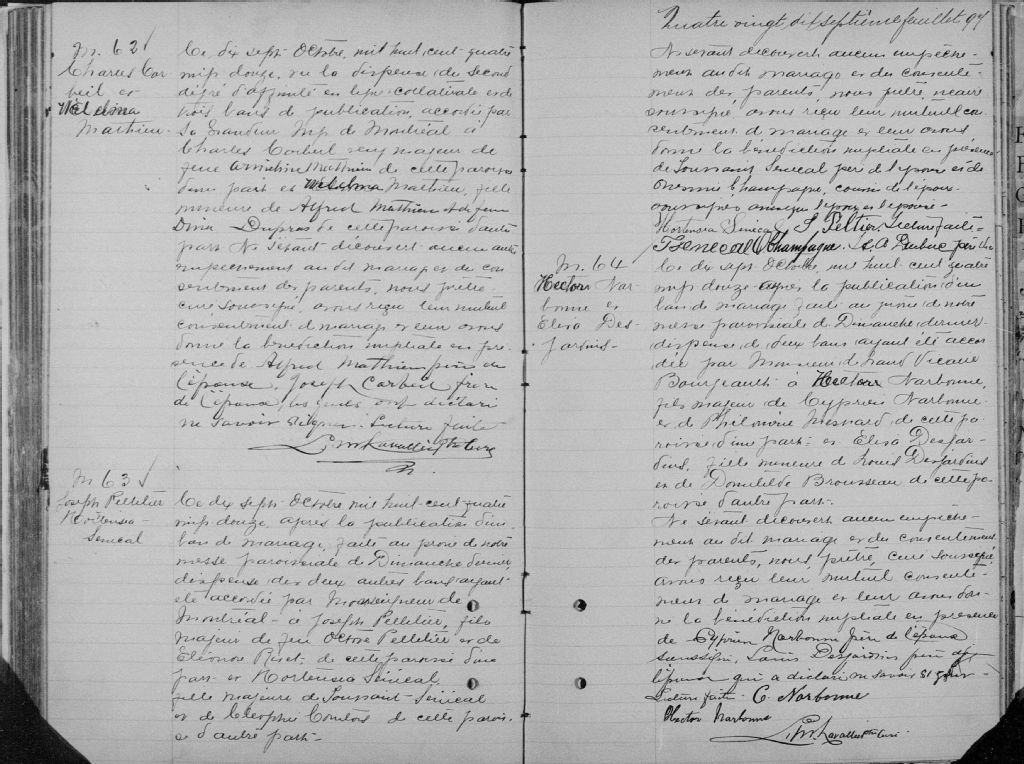 M. 62
Charles Cor
beil et
Melelma
Mathieu.
Ce dix sept Octobre, mil huit cent quatre
vingt douze, vu la dispense du second
degré d'affinité en ligne collatérale et de
trois bans de publication, accordée par
Sa Grandeur Mgr de Montréal à
Charles Corbeil veuf majeur de
feue Mathieu de cette paroisse
d'une part et Mathieu, fille
mineure de Alfred Mathieu et de feue
Dina Dupras de cette paroisse d'autre
part. Ne s'étant découvert aucun autre
empêchement au dit mariage et du con
sentement des parents, nous prêtre
curé soussigné, avons reçu leur mutuel
consentement de mariage et leur avons
donné la bénédiction nuptiale en pré
sence de Alfred Mathieu père de
l'épouse, Joseph Corbeil frère
de l'époux, les quels ont déclaré
ne savoir signer. Lecture faite
L. M. Lavallée Ptre Curé
M 63
Joseph Pelletier
Hortensia
Senécal
Ce dix sept Octobre mil huit cent quatre
vingt douze, après la publication d'un
ban de mariage, faite au prône de notre
messe paroissiale de Dimanche dernier,
dispense des deux autres bans ayant
été accordée par Monseigneur de
Montréal à Joseph Pelletier, fils
majeur de feu Octave Pelletier et de
Eléonore Riset de cette paroisse d'une
part et Hortensia Senécal,
fille majeure de Toussaint Senécal
et de Cleophée Comtois de cette parois
se d'autre part.
Quatre vingt dix septième feuillet 97
Ne s'étant découvert aucun empêche-
ment au dit mariage et du consente-
ment des parents, nous prêtre, vicaire
soussigné, avons reçu leur mutuel con
sentement de mariage et leur avons
donné la bénédiction nuptiale en présence
de Toussaint Senécal père de l'épouse et de
Champagne, cousin de l'époux
soussignés ainsi que l'époux et l'épouse.
Hortensia Senecal J. Peltier. Lecture faite.
T Senecal Champagne. A. A. Dubuc ptre Vic
M. 64
Hector Nar-
bonne et
Elisa Des-
jardins.
Ce dix sept Octobre, mil huit cent quatre
vingt douze après la publication d'un
ban de mariage faite au prône de notre
messe paroissiale de Dimanche dernier
dispense de deux bans ayant été accor
dée par Monsieur le Grand Vicaire
Bourgeault à Hector Narbonne,
fils majeur de Cyprien Narbonne
et de Philomène Mesnard de cette pa-
roisse d'une part et Elisa Desjar-
dins, fille mineure de Louis Desjardins
et de Domitilde Brousseau de cette pa-
roisse d'autre part.
Ne s'étant découvert aucun empêche-
ment au dit mariage et du consentement
des parents, nous, prêtre, curé soussigné
avons reçu leur mutuel consente-
ment de mariage et leur avons don-
né la bénédiction nuptiale en présence
de Cyprien Narbonne père de l'époux
soussigné, Louis Desjardins père de
l'épouse qui a déclaré ne savoir signer.
Lecture faite C Narbonne
Hector Narbonne
L. M. Lavallée Ptre Curé